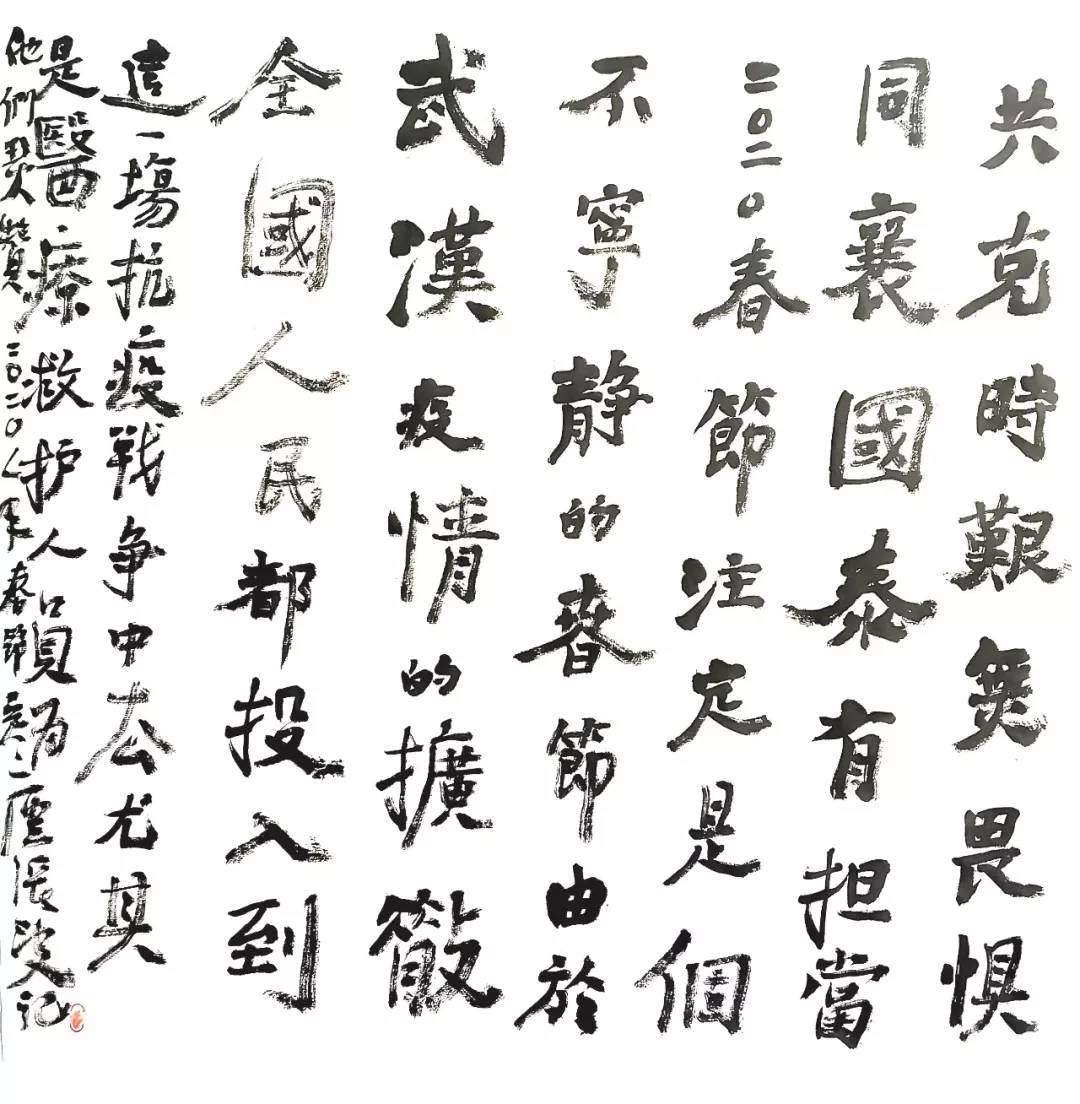 共克時艱無畏懼
同襄國泰有担當
二〇二〇春節注定是個
不寧静的春節由於
武漢疫情的擴散
全國人民都投入到
這一場抗疫戰争中去尤其
是醫療救护人員為
他們點贊二〇二〇年春節一廬張記